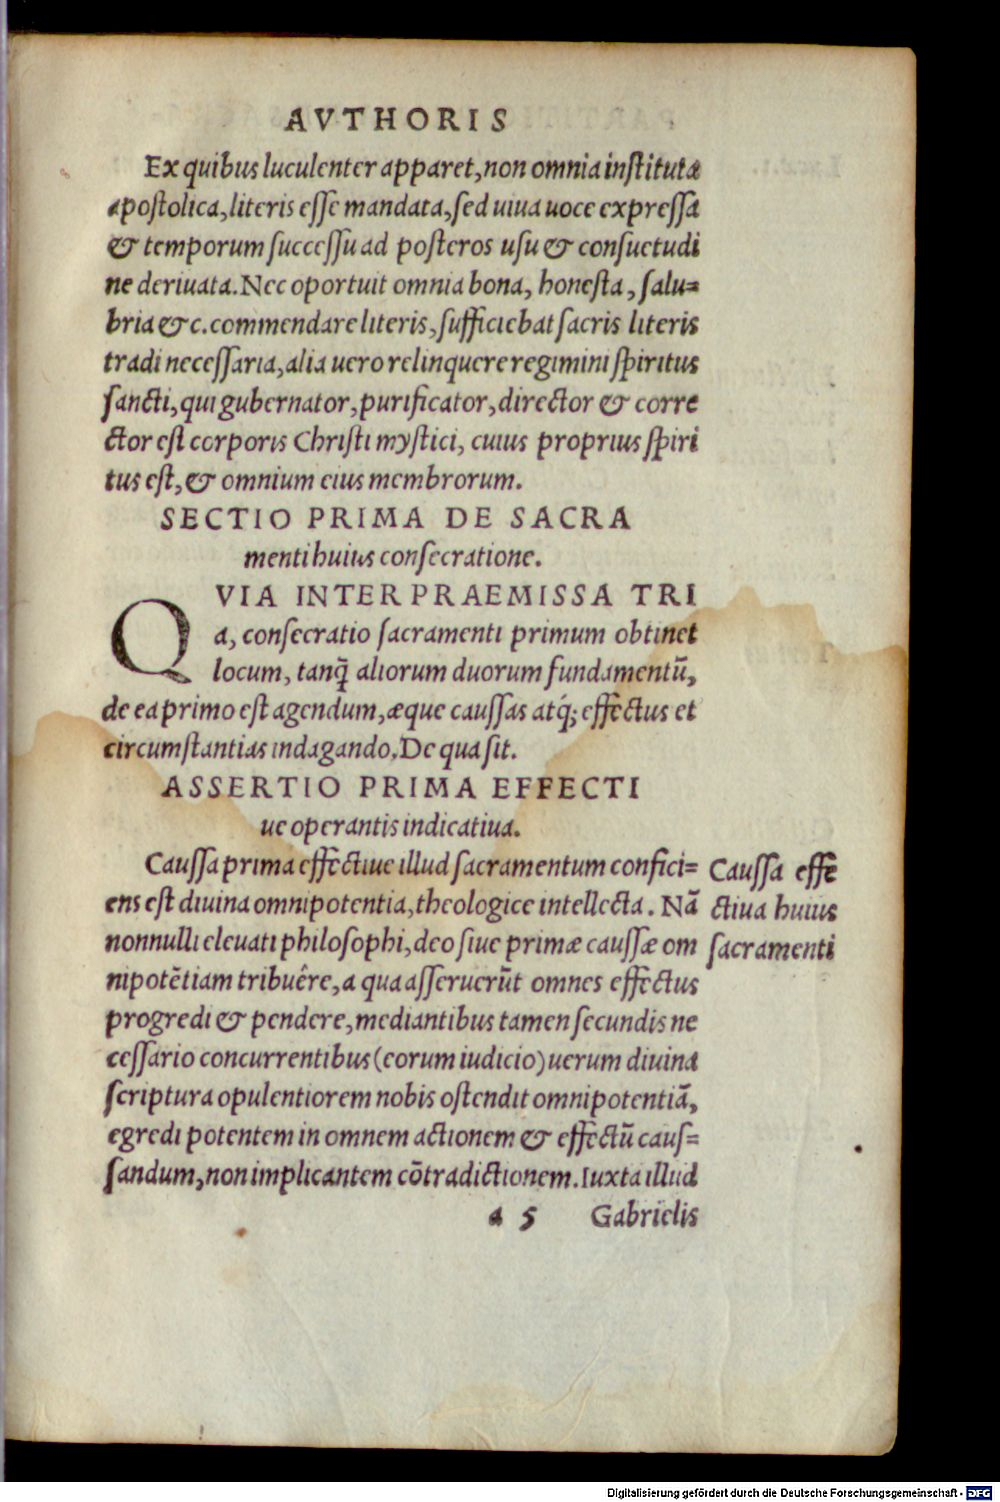 AVTHORIS
Ex quibus luculenter apparet, non omnia instituta
apostolica, literis esse mandata, sed uiua uoce expressa
& temporum successu ad posteros usu & consuetudi
ne deriuata. Nec oportuit omnia bona, honesta, salu=
bria &c. commendare literis, sufficiebat sacris literis
tradi necessaria, alia uero relinquere regimini spiritus
sancti, qui gubernator, purificator, director & corre
ctor est corporis Christi mystici, cuius proprius spiri
tus est, & omnium eius membrorum.
SECTIO PRIMA DE SACRA
menti huius consecratione.
QVIA INTER PRAEMISSA TRI
a, consecratio sacramenti primum obtinet
locum, tanq̃ aliorum duorum fundamentũ,
de ea primo est agendum, æque caussas atq́; effectus et
circumstantias indagando, De qua sit.
ASSERTIO PRIMA EFFECTI
ue operantis indicatiua.
Caussa prima effectiue illud sacramentum confici=
ens est diuina omnipotentia, theologice intellecta. Nã
nonnulli eleuati philosophi, deo siue primæ caussæ om
nipotẽtiam tribuêre, a qua asseruerũt omnes effectus
progredi & pendere, mediantibus tamen secundis ne
cessario concurrentibus (eorum iudicio) uerum diuina
scriptura opulentiorem nobis ostendit omnipotentiã,
egredi potentem in omnem actionem & effectũ caus=
sandum, non implicantem cõtradictionem. Iuxta illud
a 5 Gabrielis
Caussa effe
ctiua huius
sacramenti
Digitalisierung gefördert durch die Deutsche Forschungsgemeinschaft - DFG